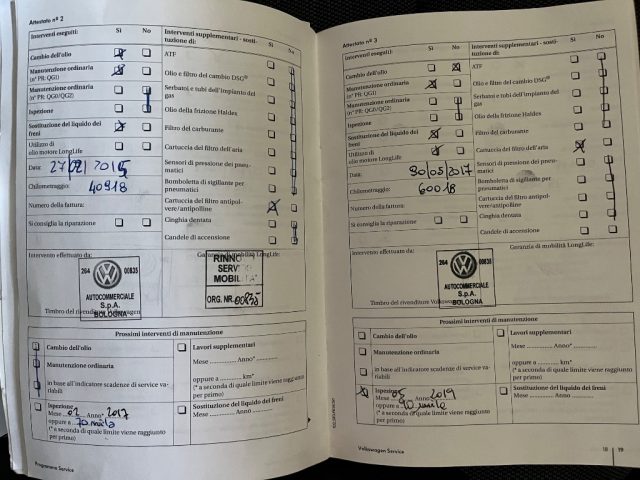 Attestato n° 2
Interventi eseguiti: Sì No
Cambio dell'olio
Manutenzione ordinaria
(n° PR: QG1)
Manutenzione ordinaria
(n° PR: QG0/QG2)
Ispezione
Sostituzione del liquido dei
freni
Utilizzo di
olio motore LongLife
Data: 27/02/2015
Chilometraggio: 40918
Numero della fattura:
Si consiglia la riparazione
Interventi supplementari - sosti-
tuzione di: Sì No
ATF
Olio e filtro del cambio DSG®
Serbatoi e tubi dell'impianto del
gas
Olio della frizione Haldex
Filtro del carburante
Cartuccia del filtro dell'aria
Sensori di pressione dei pneu-
matici
Bomboletta di sigillante per
pneumatici
Cartuccia del filtro antipol-
vere/antipolline
Cinghia dentata
Candele di accensione
Intervento effettuato da:
Garanzia di mobilità LongLife:
264 00835
AUTOCOMMERCIALE
S.p.A.
BOLOGNA
SERV
MOBIL
ORG. NR. 00835
Timbro del rivenditore Volkswagen
Prossimi interventi di manutenzione
Cambio dell'olio
Manutenzione ordinaria
in base all'indicatore scadenze di service va-
riabili
Ispezione
Mese 02 Anno* 2017
oppure a 70 mila
(* a seconda di quale limite viene raggiunto
per primo)
Lavori supplementari
Mese Anno*
oppure a km*
(* a seconda di quale limite viene raggiunto
per primo)
Sostituzione del liquido dei freni
Mese Anno
Programma Service
Attestato n° 3
Interventi eseguiti: Sì No
Cambio dell'olio
Manutenzione ordinaria
(n° PR: QG1)
Manutenzione ordinaria
(n° PR: QG0/QG2)
Ispezione
Sostituzione del liquido dei
freni
Utilizzo di
olio motore LongLife
Data: 30/05/2017
Chilometraggio: 60018
Numero della fattura:
Si consiglia la riparazione
Interventi supplementari - sosti-
tuzione di: Sì No
ATF
Olio e filtro del cambio DSG®
Serbatoi e tubi dell'impianto del
gas
Olio della frizione Haldex
Filtro del carburante
Cartuccia del filtro dell'aria
Sensori di pressione dei pneu-
matici
Bomboletta di sigillante per
pneumatici
Cartuccia del filtro antipol-
vere/antipolline
Cinghia dentata
Candele di accensione
Intervento effettuato da:
Garanzia di mobilità LongLife:
264 00835
AUTOCOMMERCIALE
S.p.A.
BOLOGNA
Timbro del rivenditore Volkswagen
Prossimi interventi di manutenzione
Cambio dell'olio
Manutenzione ordinaria
in base all'indicatore scadenze di service va-
riabili
Ispezione
Mese 05 Anno* 2019
oppure a 90 mila
(* a seconda di quale limite viene raggiunto
per primo)
Lavori supplementari
Mese Anno*
oppure a km*
(* a seconda di quale limite viene raggiunto
per primo)
Sostituzione del liquido dei freni
Mese Anno
Volkswagen Service
18 19